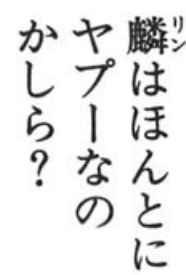 麟はほんとに
ヤプーなの
かしら?